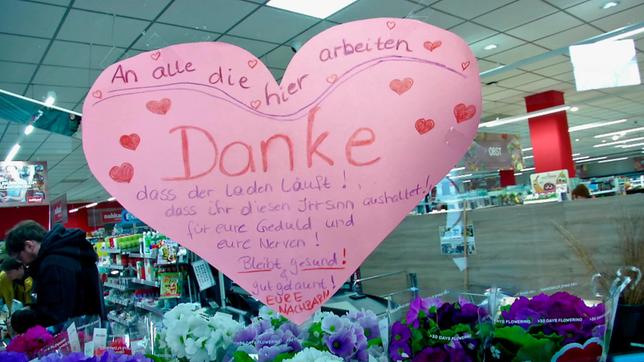 An alle die hier arbeiten
Danke
dass der Laden Läuft!,
dass ihr diesen Irrsinn aushaltet!
für eure Geduld und
eure Nerven!
Bleibt gesund!
&
gut gelaunt!
EURE
NACHBAR!!
OBST
>30 DAYS FLOWERING
>30 DAYS FLOWERING
>30 DAYS FLOWERING